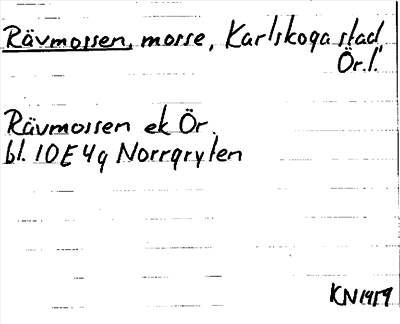 Rävmossen, mosse, Karlskoga stad
Ör.l.
Rävmossen ek Ör.
bl. 10E4g Norrgryten
KN1959